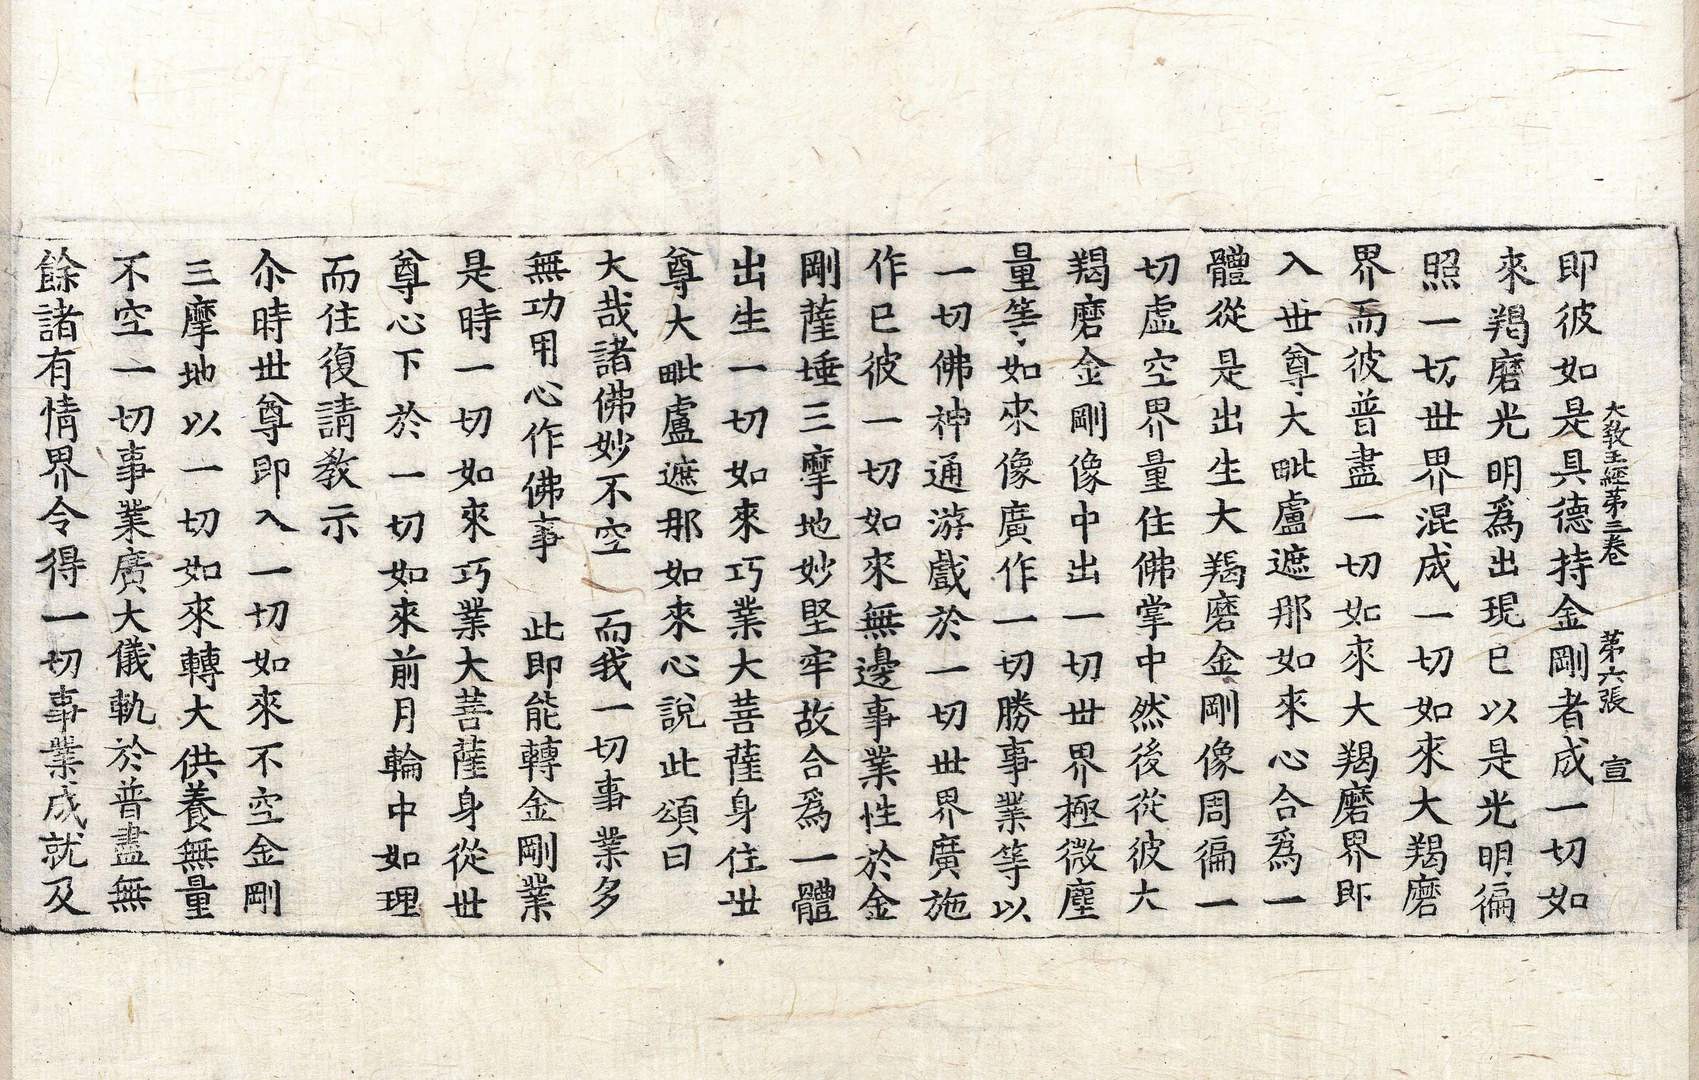 大教王經第三卷　第六張　宣
即彼如是具德持金剛者成一切如
來羯磨光明爲出現已以是光明徧
照一切世界混成一切如來大羯磨
界而彼普盡一切如來大羯磨界即
入世尊大毗盧遮那如來心合爲一
體從是出生大羯磨金剛像周徧一
切虛空界量住佛掌中然後從彼大
羯磨金剛像中出一切世界極微塵
量等如來像廣作一切勝事業等以
一切佛神通游戲於一切世界廣施
作已彼一切如來無邊事業性於金
剛薩埵三摩地妙堅牢故合爲一體
出生一切如來巧業大菩薩身住世
尊大毗盧遮那如來心說此頌曰
大哉諸佛妙不空　而我一切事業多
無功用心作佛事　此即能轉金剛業
是時一切如來巧業大菩薩身從世
尊心下於一切如來前月輪中如理
而住復請敎示
尒時世尊即入一切如來不空金剛
三摩地以一切如來轉大供養無量
不空一切事業廣大儀軌於普盡無
餘諸有情界令得一切事業成就及